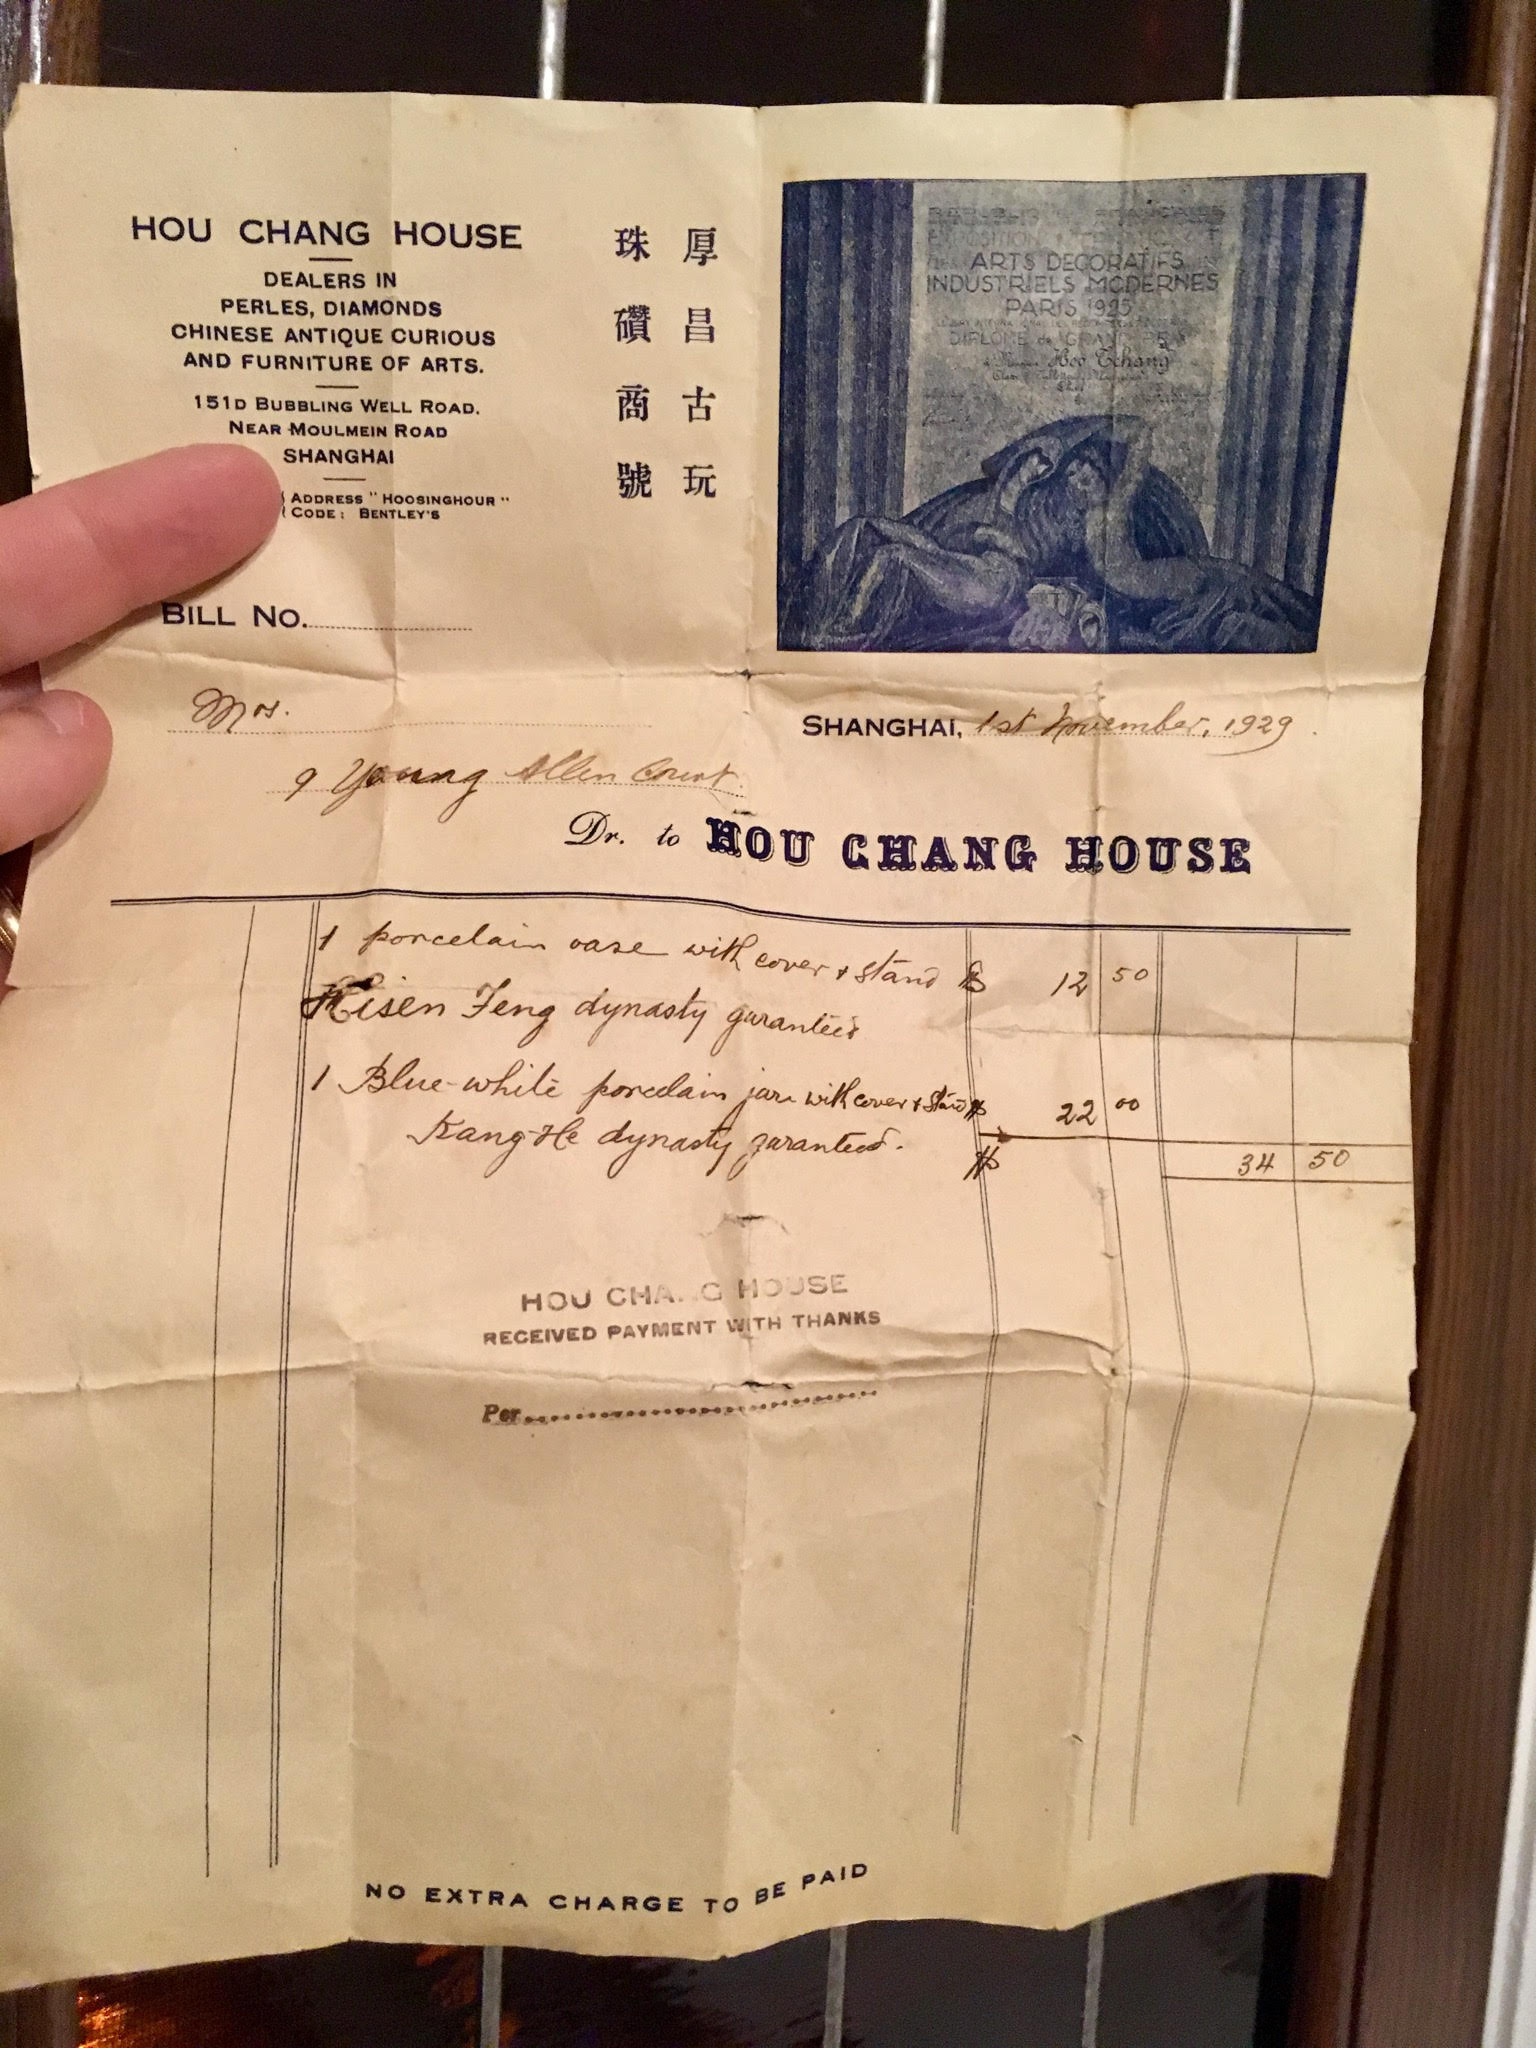 HOU CHANG HOUSE
DEALERS IN
PERLES, DIAMONDS
CHINESE ANTIQUE CURIOUS
AND FURNITURE OF ARTS.
151D BUBBLING WELL ROAD.
NEAR MOULMEIN ROAD
SHANGHAI
ADDRESS "HOOSINGHOUR"
CODE: BENTLEY'S
厚昌古玩
珠鑽商號
ARTS DECORATIFS
INDUSTRIELS MODERNES
PARIS 1925
DIPLOME de GRAND PRIX
Hoo Tchang
BILL NO.
Mrs.
SHANGHAI, 1st November, 1929.
9 Young Allen Court.
Dr. to HOU CHANG HOUSE
1 porcelain vase with cover & stand $ 12 50
Hisen Feng dynasty garanteed
1 Blue-white porcelain jar with cover & stand $ 22 00
Kang-He dynasty garanteed.
$ 34 50
HOU CHANG HOUSE
RECEIVED PAYMENT WITH THANKS
Per
NO EXTRA CHARGE TO BE PAID